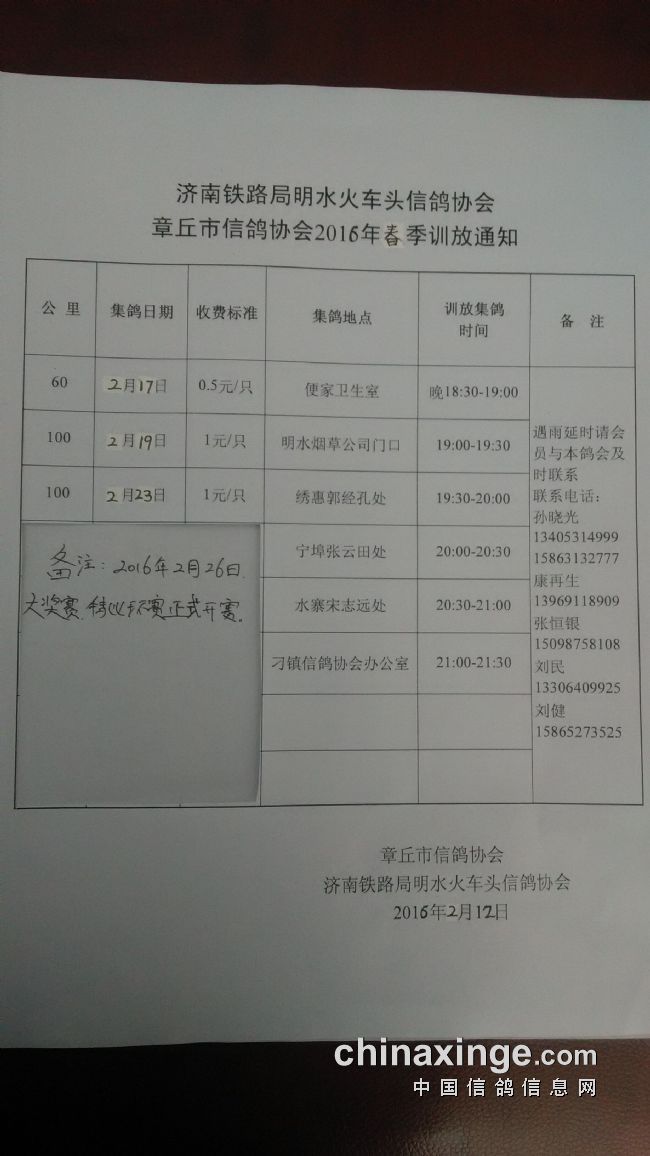 济南铁路局明水火车头信鸽协会
章丘市信鸽协会2016年春季训放通知
公 里 集鸽日期 收费标准 集鸽地点 训放集鸽时间 备 注
60 2月17日 0.5元/只 便家卫生室 晚18:30-19:00
100 2月19日 1元/只 明水烟草公司门口 19:00-19:30
100 2月23日 1元/只 绣惠郭经孔处 19:30-20:00
宁埠张云田处 20:00-20:30
水寨宋志远处 20:30-21:00
刁镇信鸽协会办公室 21:00-21:30
备注：2016年2月26日
大奖赛 环赛正式开赛。
遇雨延时请会
员与本鸽会及
时联系
联系电话：
孙晓光
13405314999
15863132777
康再生
13969118909
张恒银
15098758108
刘民
13306409925
刘健
15865273525
章丘市信鸽协会
济南铁路局明水火车头信鸽协会
2016年2月12日
chinaxinge.com
中国信鸽信息网